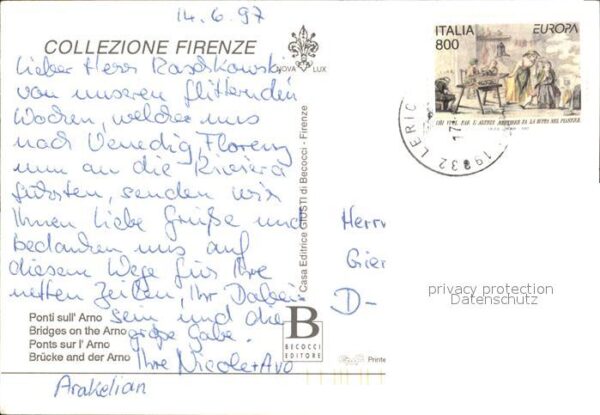 14.6.97
COLLEZIONE FIRENZE
NOVA LUX
ITALIA
800
EUROPA
CHI VUOL FAR L'ALTRUI MESTIERE FA LA ZUPPA NEL PANIERE
19032 LERIC
17
Lieber Herr Raschkowski,
von unseren flitternden
Wochen, welche uns
nach Venedig, Florenz
nun an die Riviera
führten, senden wir
Ihnen liebe Grüße und
bedanken uns auf
diesem Wege für Ihre
netten Zeilen, Ihr Dabei-
sein und die
große Gabe.
Ihre Nicole + Avo
Arakelian
Casa Editrice GIUSTI di Becocci - Firenze
Herrn
Gier
D-
privacy protection
Datenschutz
Ponti sull' Arno
Bridges on the Arno
Ponts sur l' Arno
Brücke and der Arno
B
BECOCCI
EDITORE
Printe